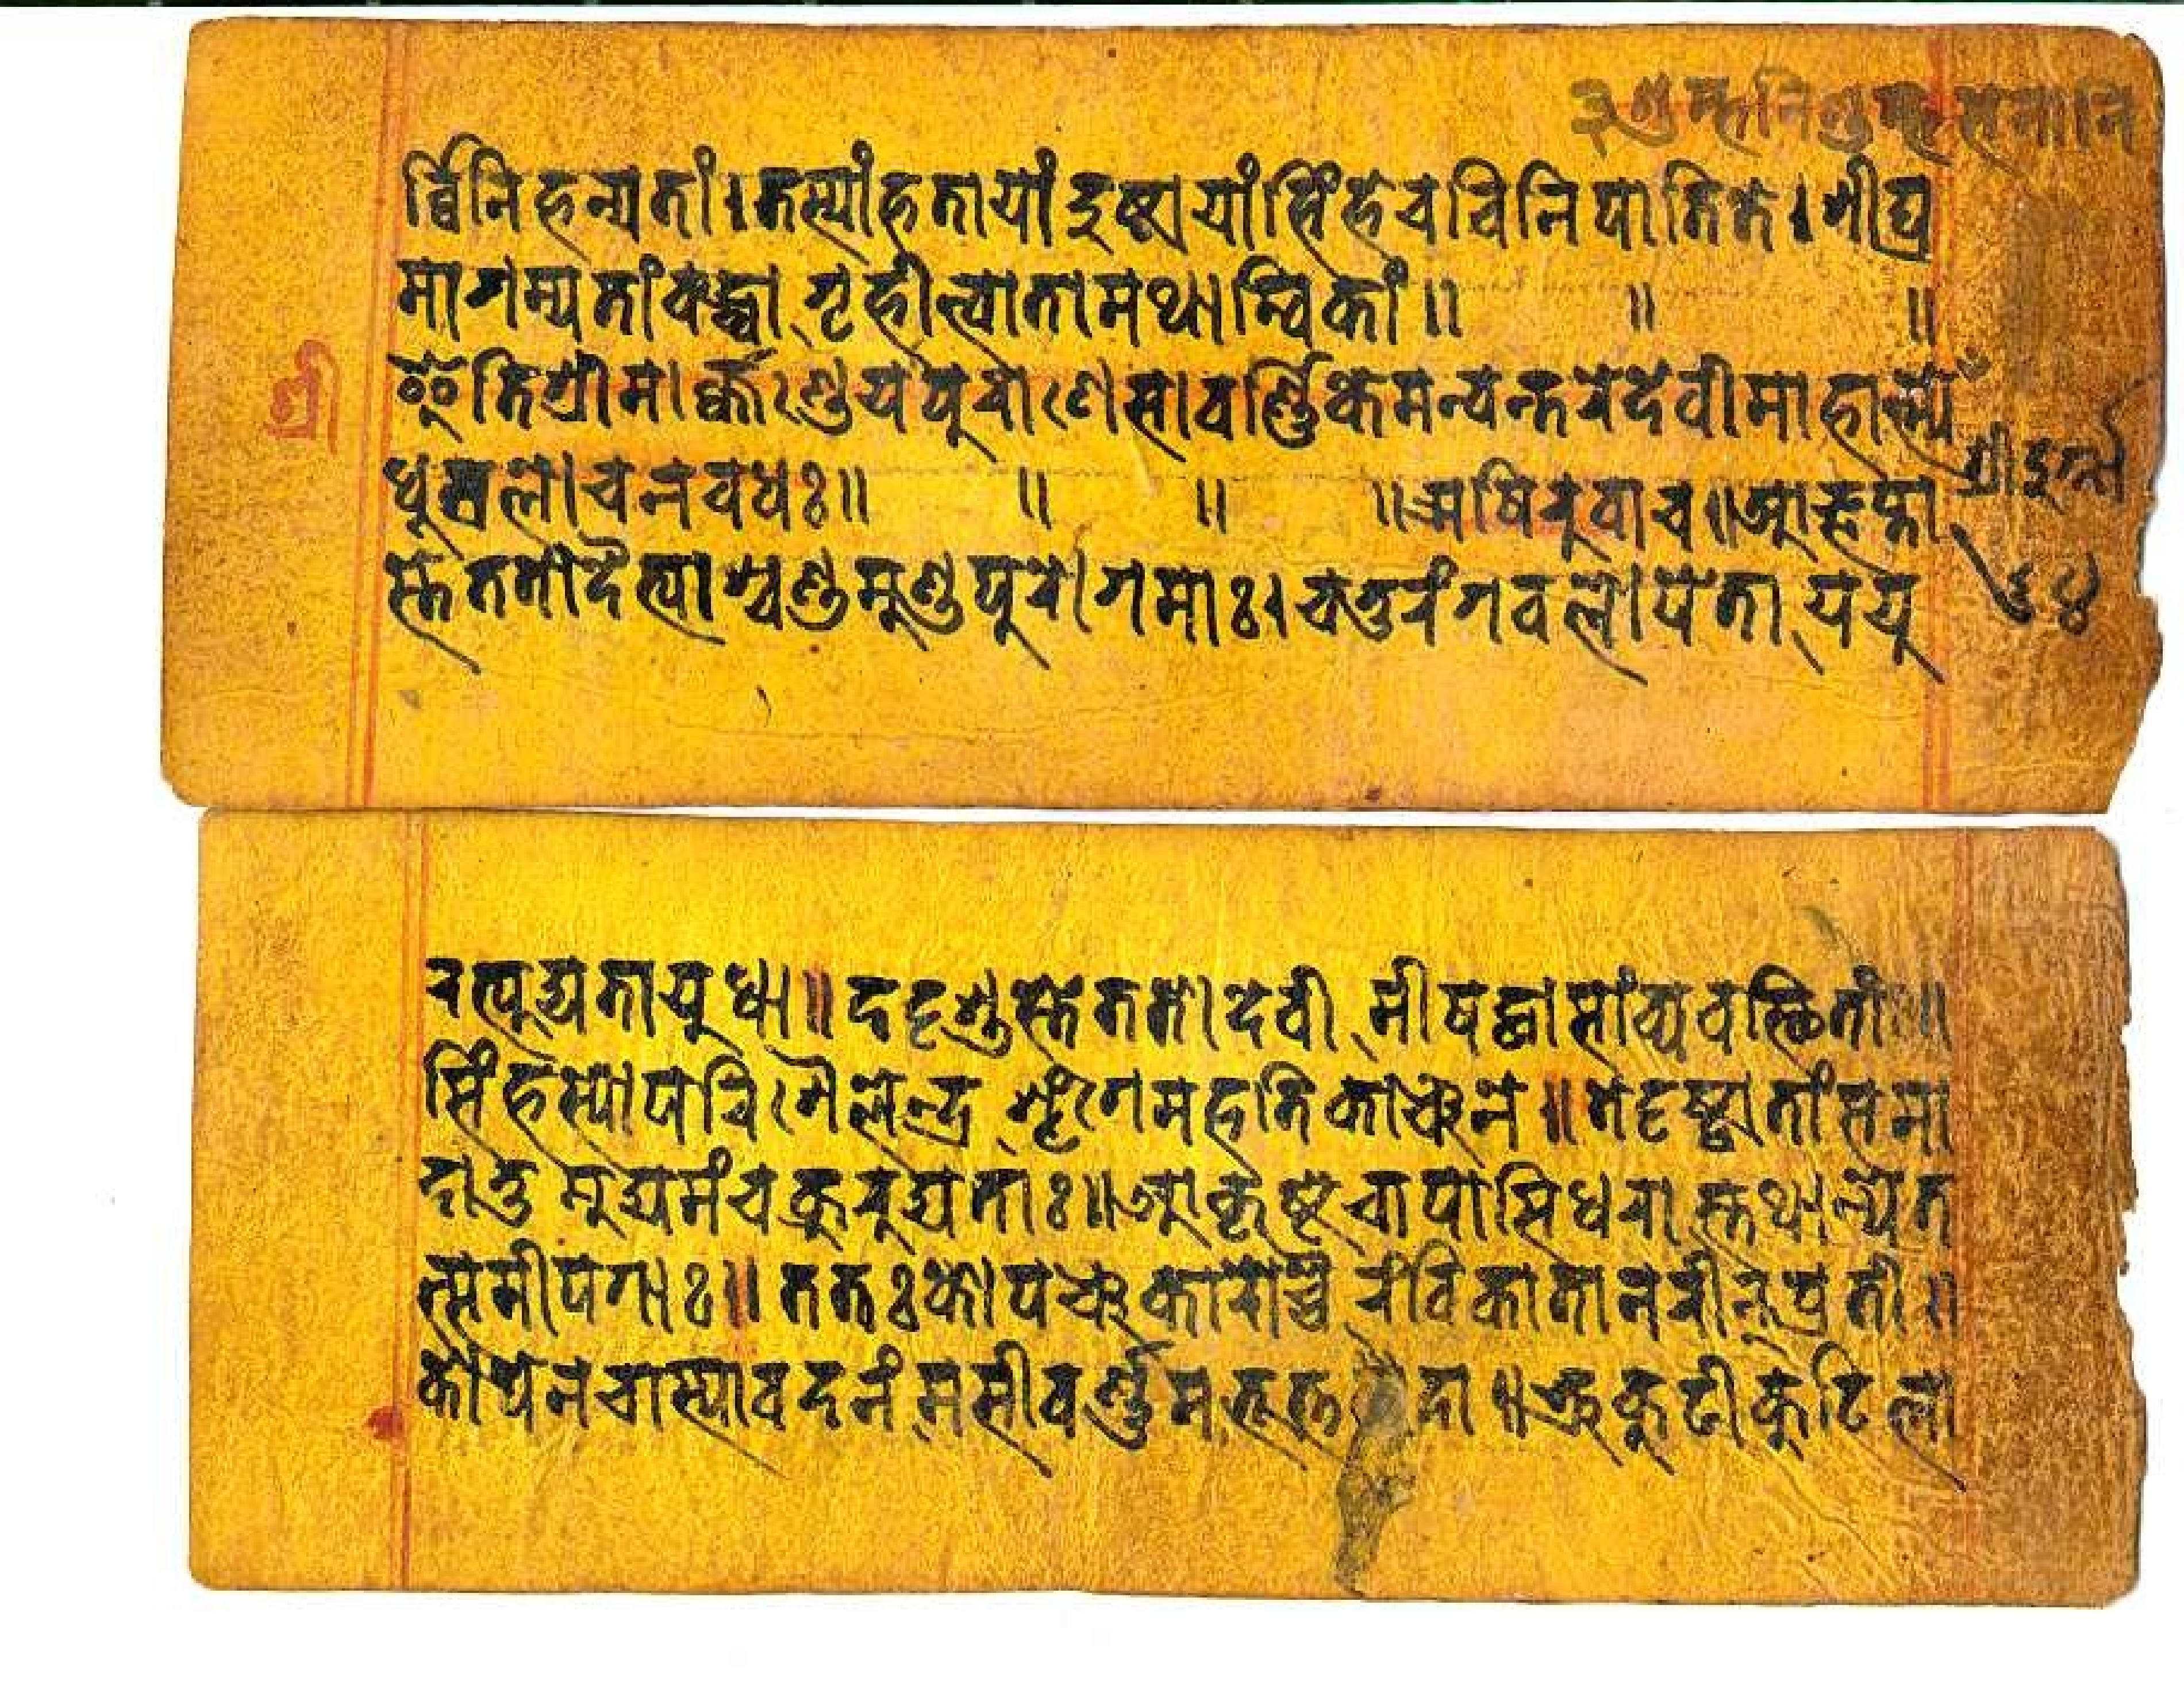 ३शुम्भनिशुम्भसेनानि
र्विनिहन्यतां।तस्यांहतायांदुष्टायांसिंहेचविनिपातिते।शीघ्र
मागम्यतांबद्ध्वागृहीत्वातामथाम्बिकां॥ ॥ ॥
इतिश्रीमार्क्कण्डेयपुराणेसावर्ण्णिकेमन्वन्तरेदेवीमाहात्म्ये
श्री
धूम्रलोचनवधः॥ ॥ ॥ ॥ऋषिरुवाच॥आज्ञप्ता
श्रीदुर्गा
स्तेततोदैत्याश्चण्डमुण्डपुरोगमाः।चतुरंगबलोपेताययु
रभ्युद्यतायुधा॥ददृशुस्तेततोदेवीमीषद्धासांव्यवस्थितां॥
सिंहस्योपरिशैलेन्द्रशृंगेमहतिकाञ्चने॥तेदृष्ट्वातांसमा
दातुमुद्यमंचक्रुरुद्यताः॥आकृष्टचापासिधरास्तथान्येत
त्समीपगाः॥ततःकोपञ्चकारोच्चैरंबिकातानरीन्प्रती॥
कोपेनचास्यावदनंमसीवर्ण्णमभूत्तदा॥भ्रुकुटीकुटिला